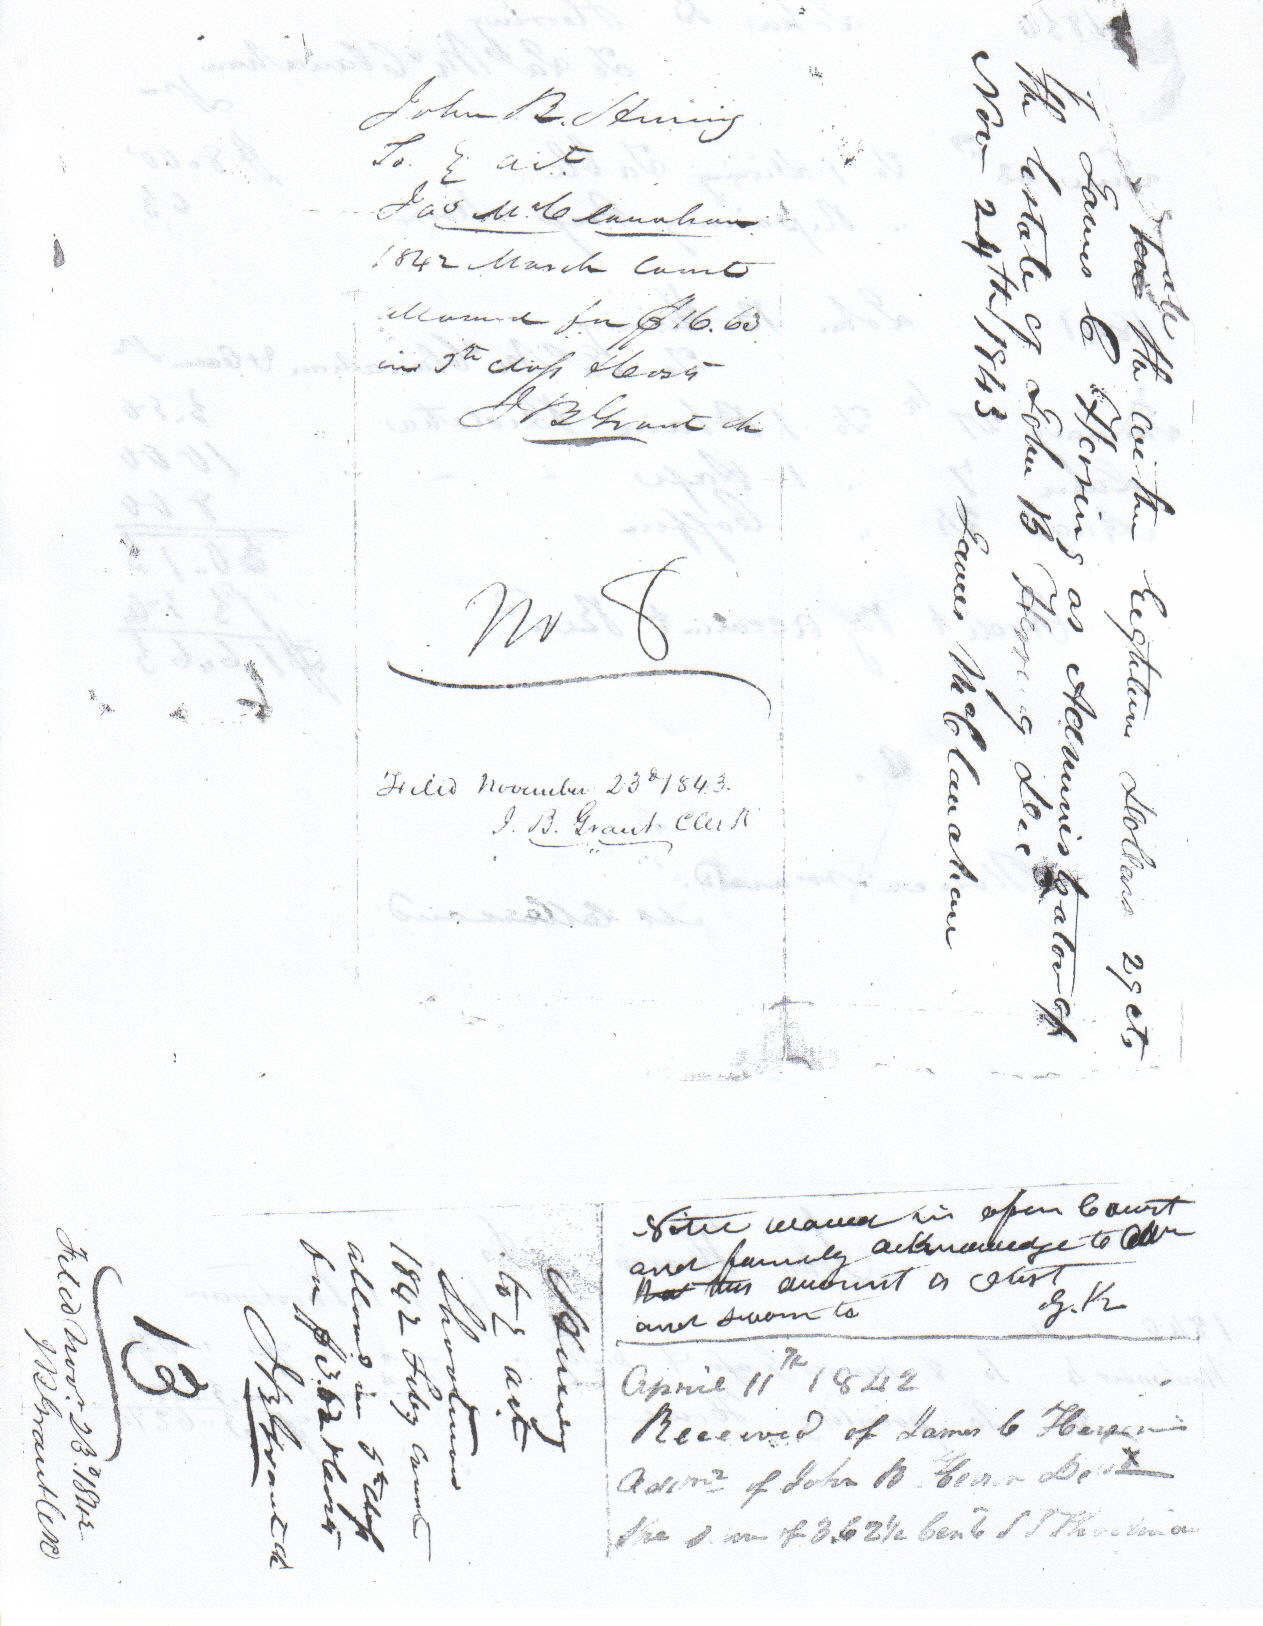 John B. Herring
To } act
Jas McClanahan
1842 March Court
allowed for $16.63
in 5th class & cost
J B Grant clk
No 8
Filed November 23d 1843.
J. B. Grant Clerk
the within Eighteen Dollars 29 cts
of James C Herring as Administrator of
the Estate of John B Herring Dec
Nov 24th 1843
James McClanahan
Notice waived in open Court
and family acknowledge to
that this amount is just
and sworn to G. K
April 11th 1842
Received of James C Herring
Admr of John B Herrin Decd
the sum of 3.62½ Cents
Herring
to } act
1842 Feby Court
allowed in 5th class
for $3.62 & cost
J B Grant clk
13
Filed Nov. 23d 1842
J B Grant